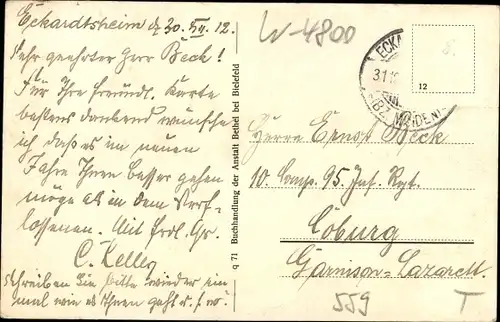 Eckardtsheim d. 30. XII. 12.
Sehr geehrter Herr Beck!
Für Ihre freundl. Karte
bestens dankend wünsche
ich daß es im neuen
Jahre Ihnen besser gehen
möge als in dem verf-
lossenen. Mit frdl. Gr.
C. Keller
Schreiben Sie bitte wieder ein
mal wie es Ihnen geht u. s. w.
q 71 Buchhandlung der Anstalt Bethel bei Bielefeld
W-4800
ECKA
31.1
BZ. MINDEN
8.
12
Herrn Ernst Beck
10. Comp. 95. Inf. Rgt.
Coburg
Garnison-Lazarett.
559
T